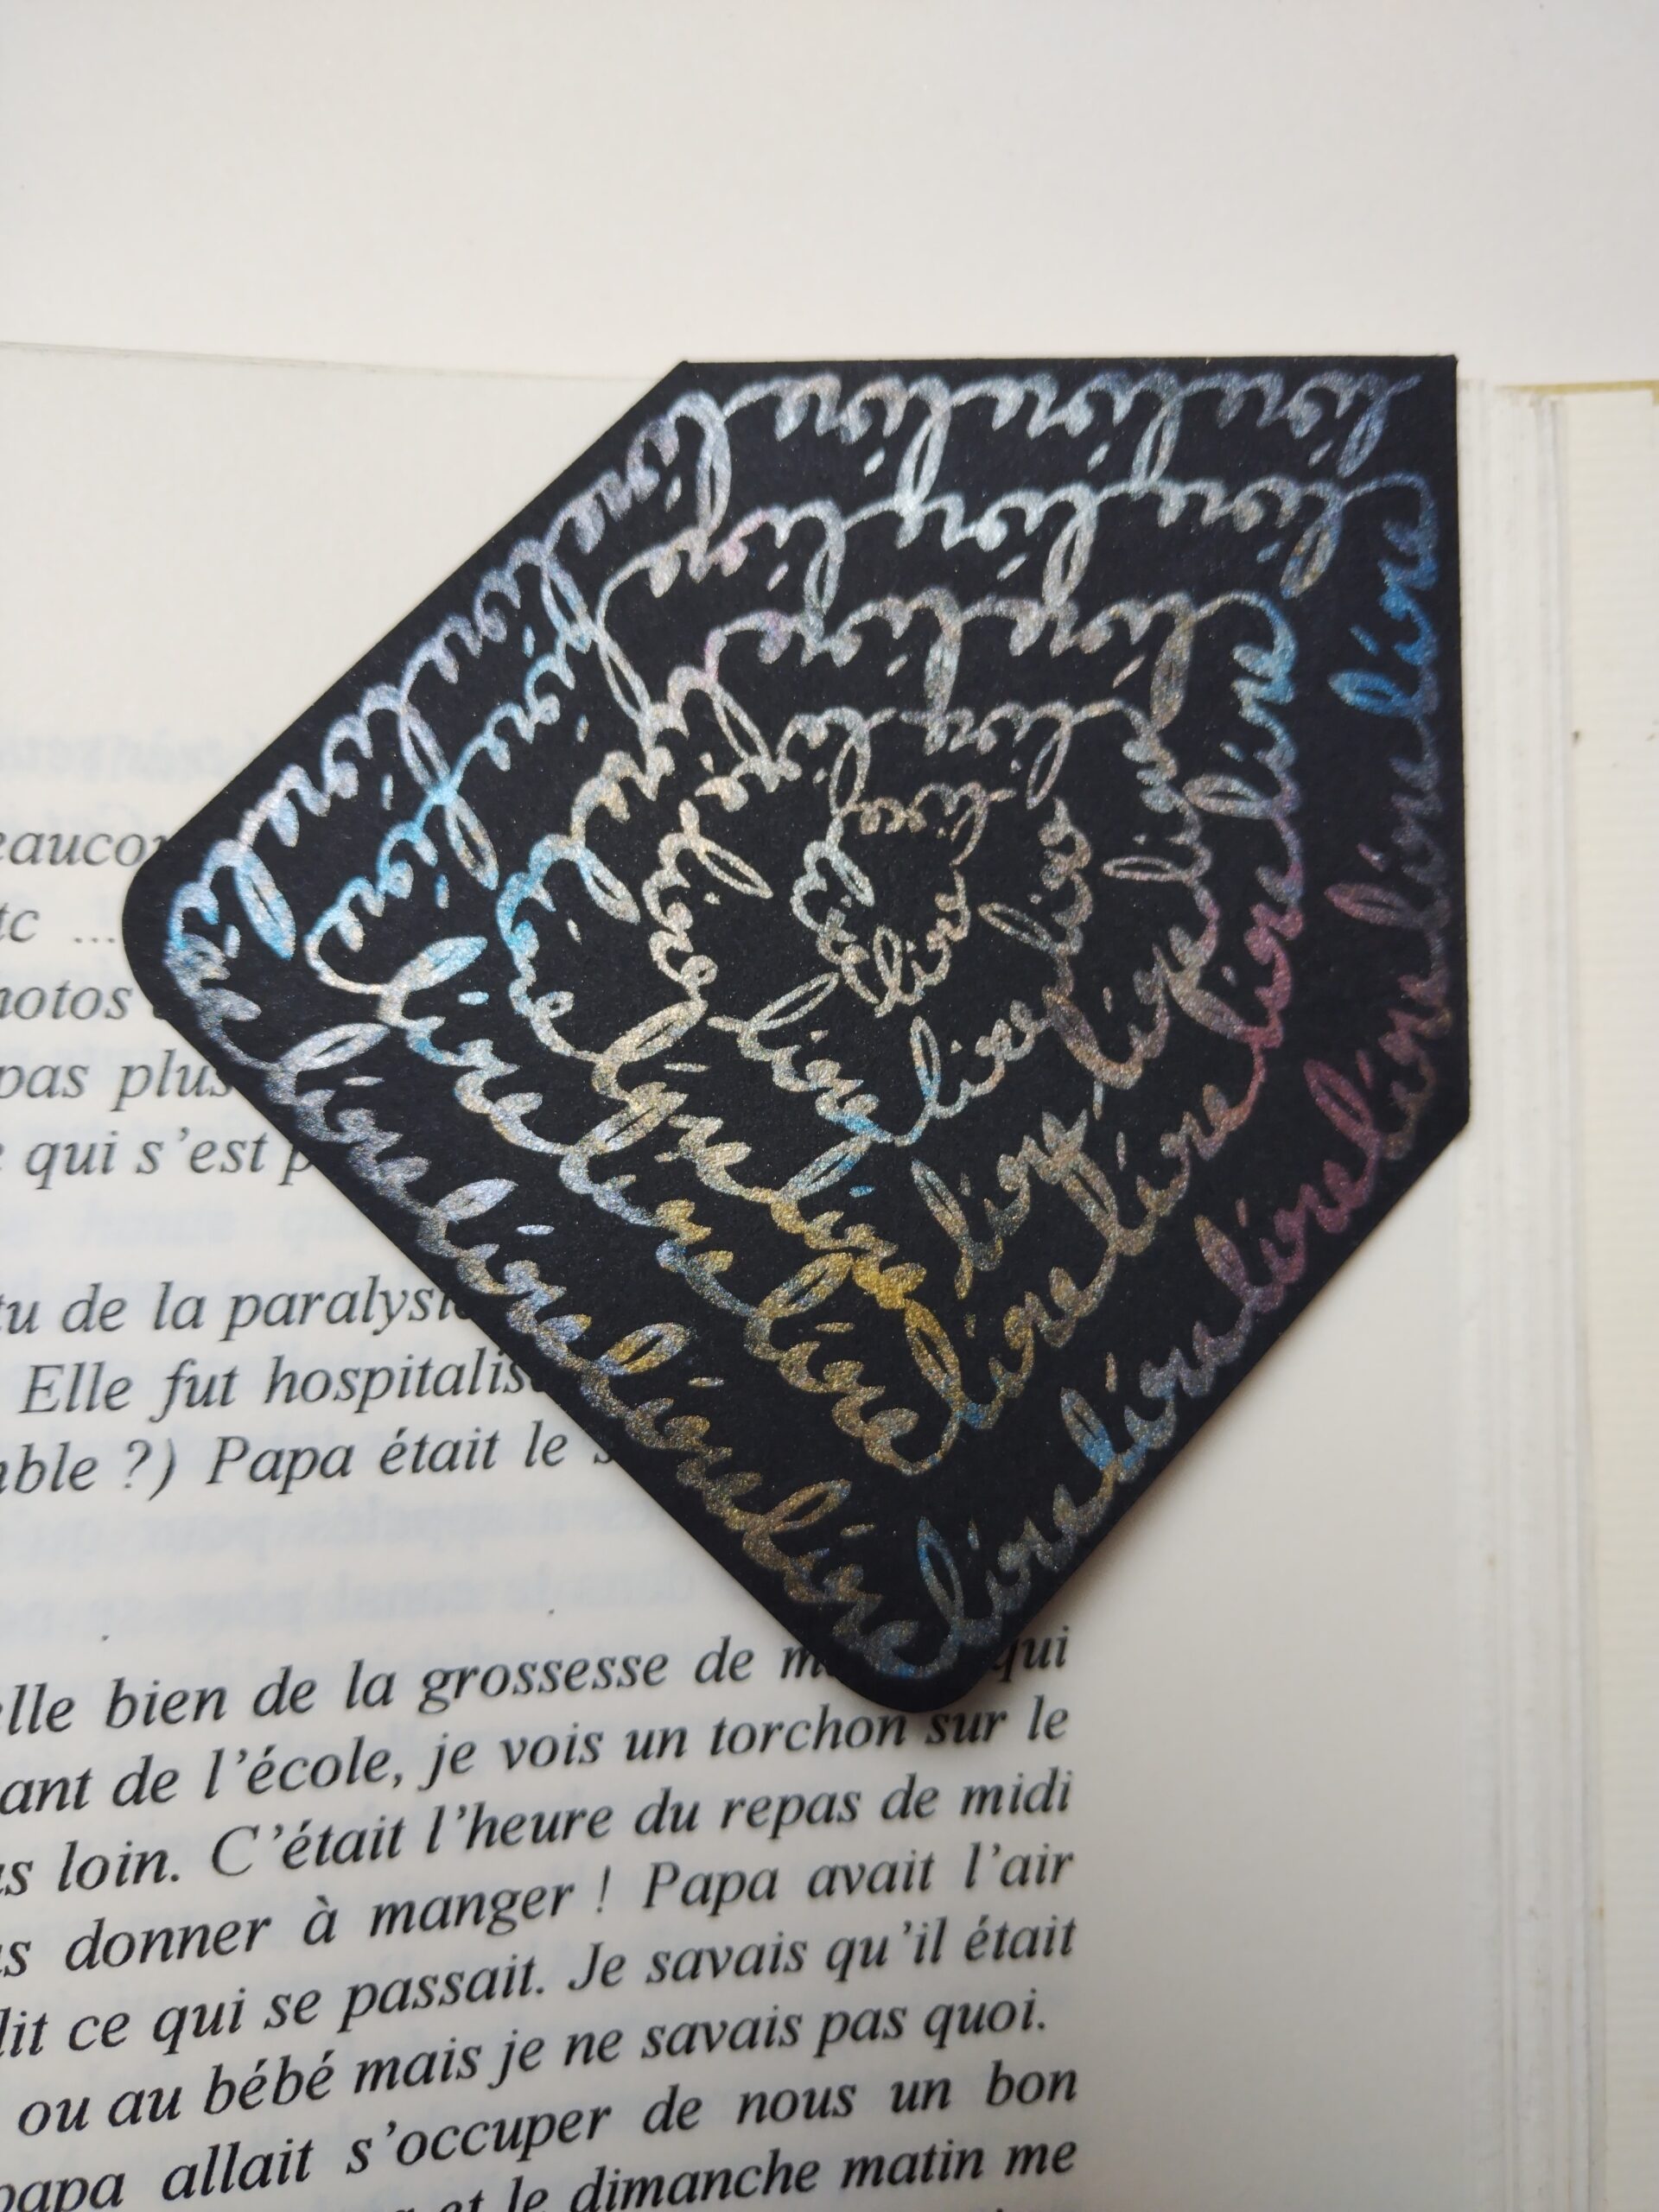 lire lire lire lire lire lire lire lire lire lire lire lire lire lire lire lire lire lire lire lire lire lire
lire lire lire lire lire lire lire lire lire lire lire lire lire lire lire
lire lire lire lire lire lire lire lire lire lire
lire lire lire lire lire lire
lire lire lire
eauco
tc ...
hotos
pas plus
qui s'est p
tu de la paralys
Elle fut hospitalis
ble ?) Papa était le s
elle bien de la grossesse de m qui
ant de l'école, je vois un torchon sur le
s loin. C'était l'heure du repas de midi
s donner à manger ! Papa avait l'air
dit ce qui se passait. Je savais qu'il était
ou au bébé mais je ne savais pas quoi.
papa allait s'occuper de nous un bon
et le dimanche matin me